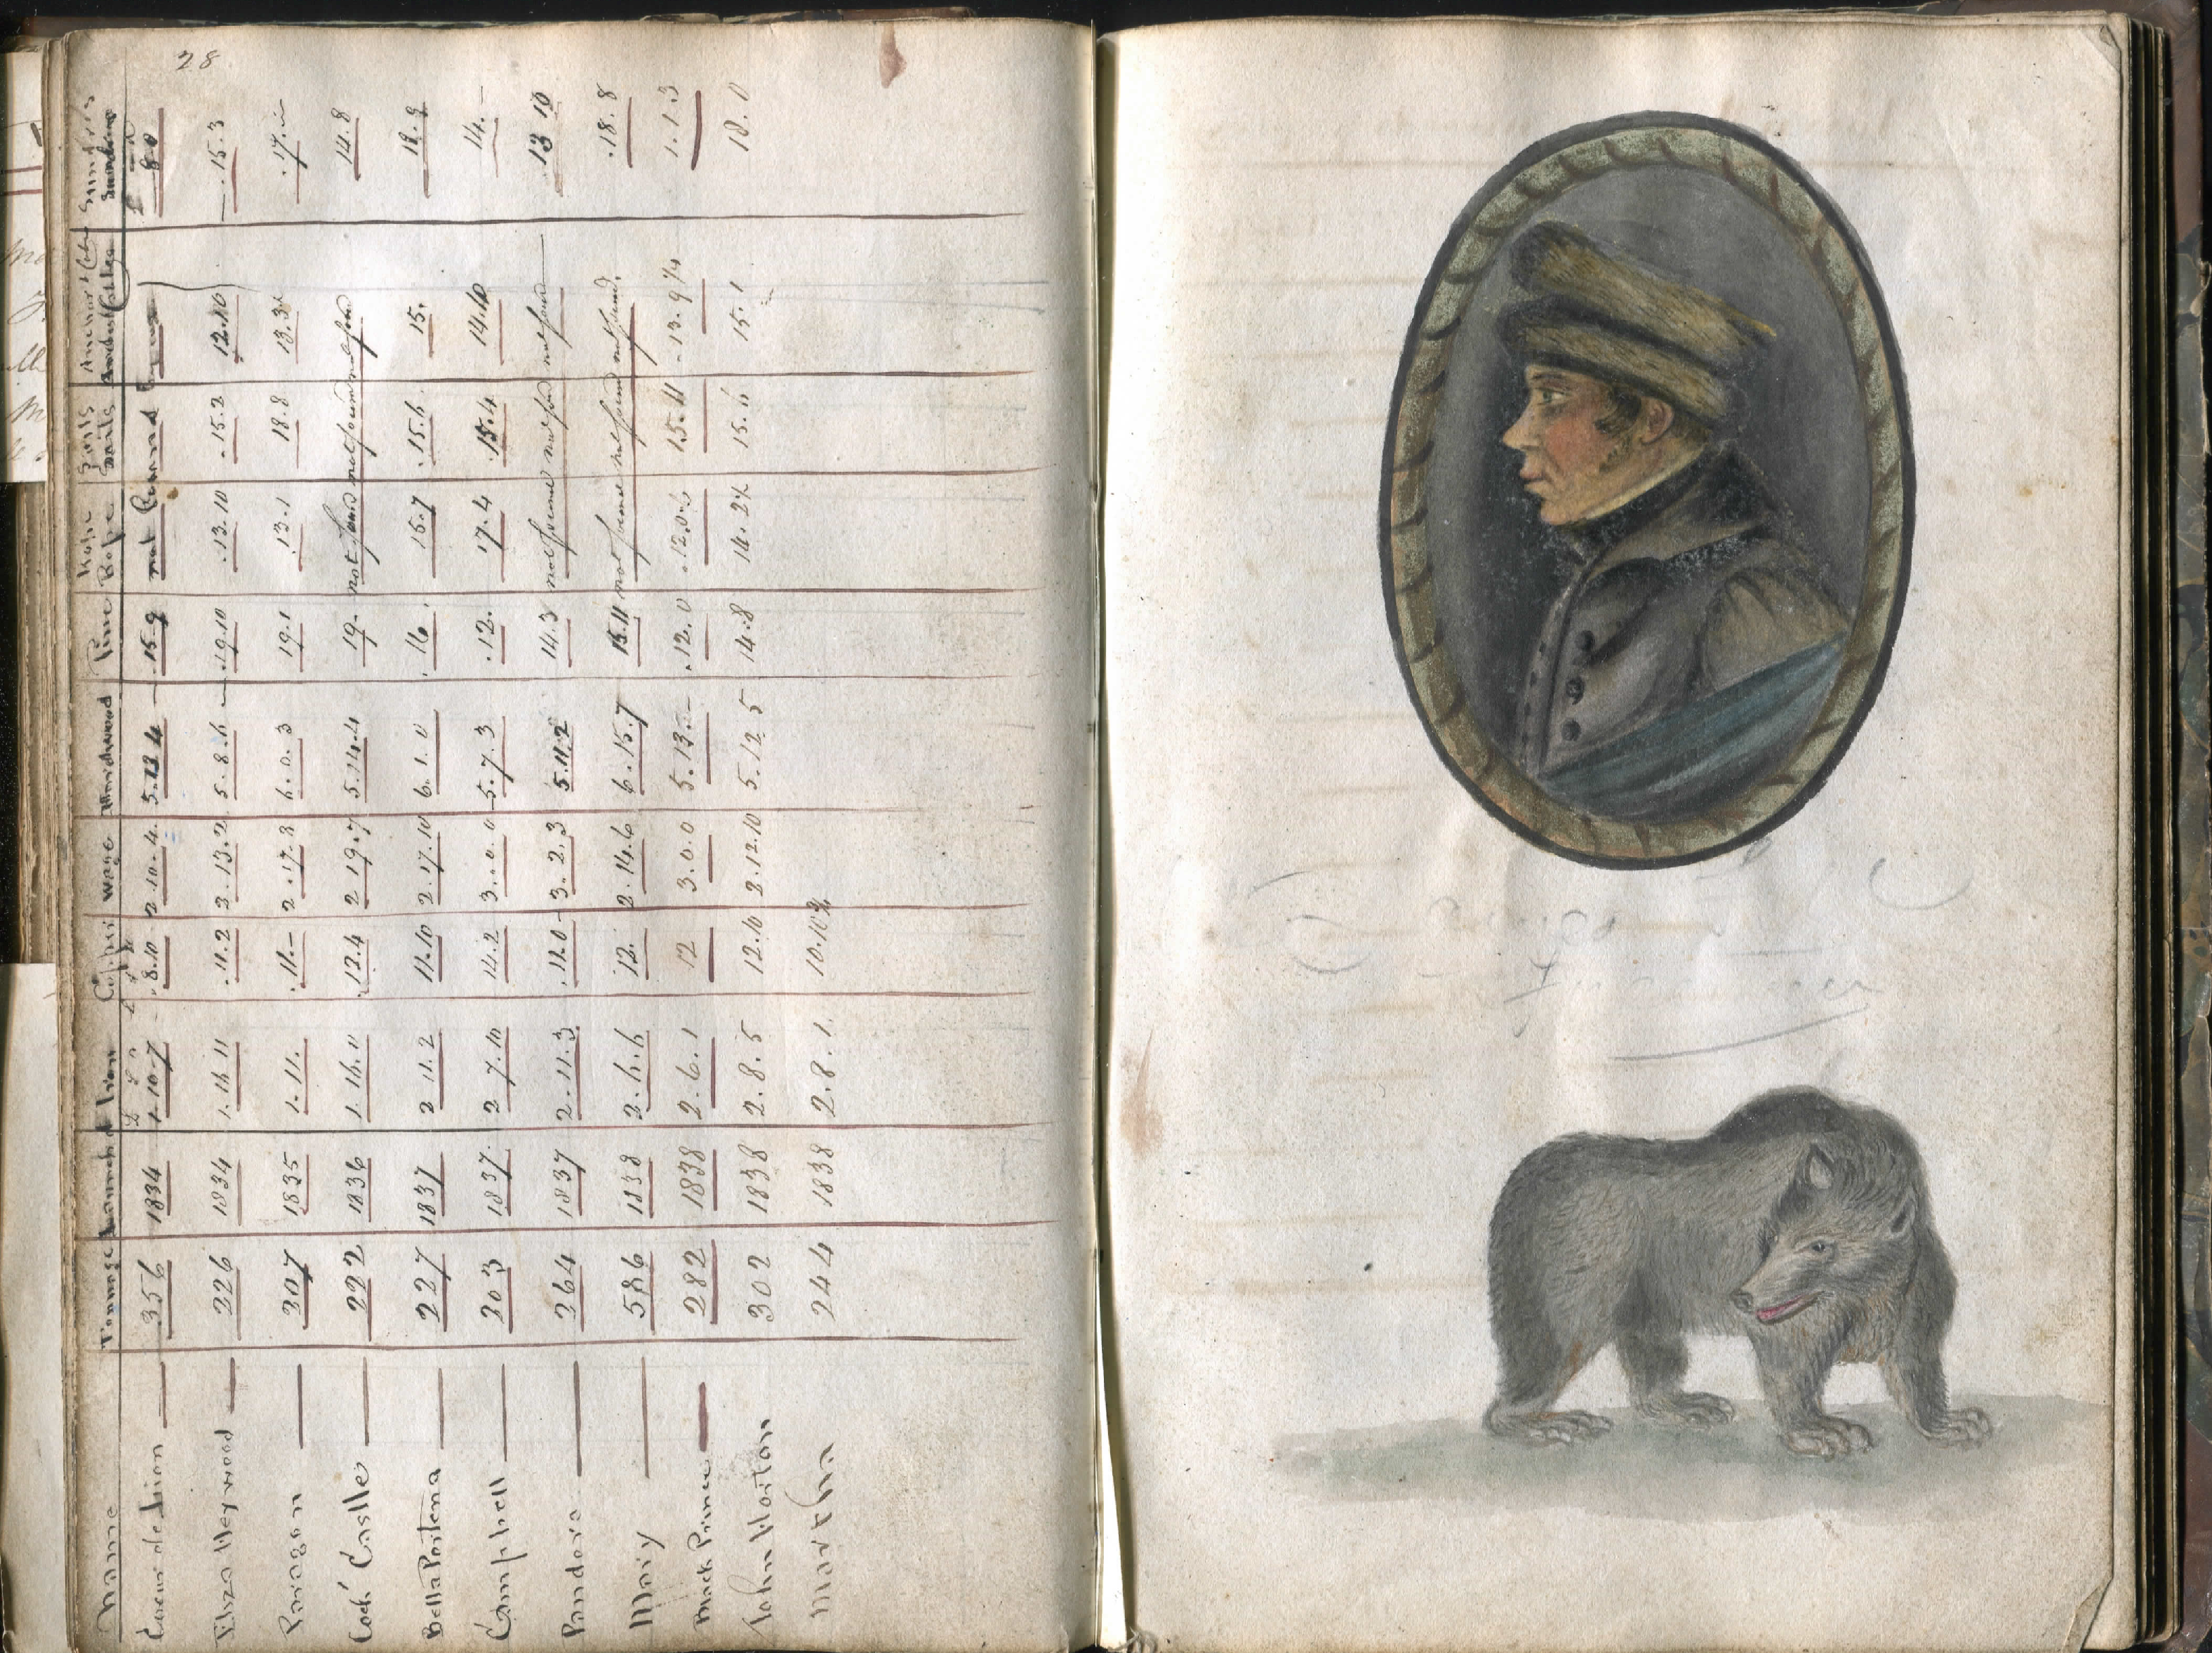 28
Name Tonnage Launched Iron Copper wage Windwood Pine Rope Sails Anchors & Sundries
Rope Sails
£ S D
Coeur de Lion 356 1834 1.10.7 .8.10 2.10.4 5.13.4 .15.9 not found 8.0
Eliza Heywood 226 1834 1.16.11 .11.2 2.13.2 5.8.6 .19.10 .13.10 .15.2 12.10 .15.3
Paragon 207 1835 1.11. .11.- 2.17.8 6.0.3 19.1 .13.1 18.8 13.3 .17.
Coch Castle 222 1836 1.16.0 .12.4 2.19.7 5.14.4 19. not found not found not found 14.8
Bella Portena 227 1837 2 11.2 11.10 2.17.10 6.1.0 .16. 15.7 .15.6 15. 18.9
Campbell 203 1837. 2 7.10 14.2 3..0.0 5.7.3 .12. 17.4 .15.4 14.10 14.-
Pandora 264 1837 2.11.3 .11.0 3.2.3 5.11.2 14.3 not found not found not found .13 10
Mary 586 1838 2.6.6 12. 2.14.6 6.15.7 15.11 not found not found not found. .18.8
Black Prince 282 1838 2.6.1 12 3.0.0 5.13.- .12.0 .12.0.6 15.11 .13.9¼ 1.1.3
John Horton 302 1838 2.8.5 12.10 2.12.10 5.12 5 14.8 14.2½ 15.11 15.1 18.0
Martha 244 1838 2.8.1. 10.10¾